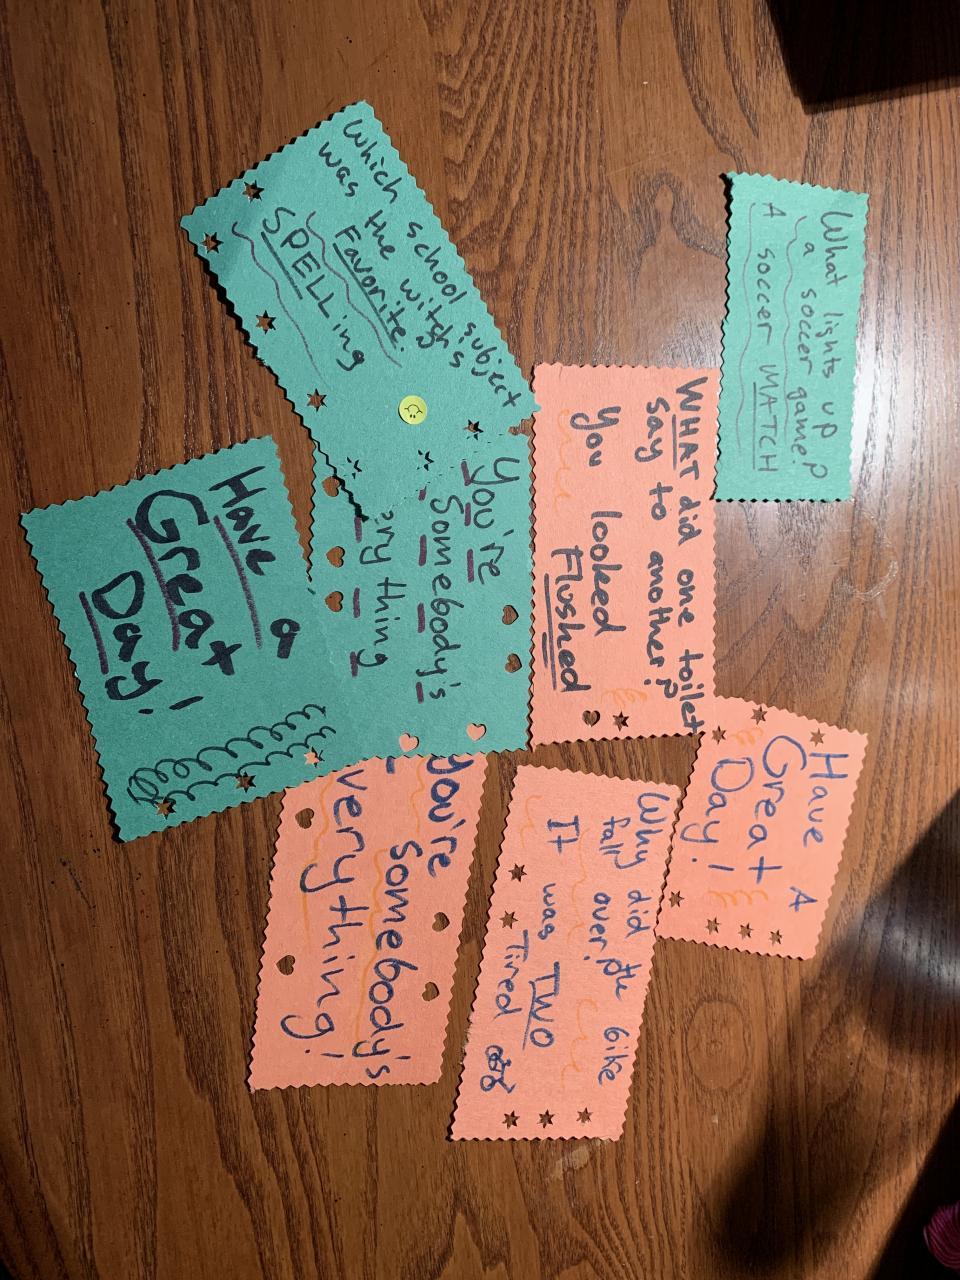 What lights up
a soccer game?
A soccer MATCH
WHAT did one toilet
say to another?
you looked
Flushed
Have A
Great
Day!
Which school subject
was the witch's
Favorite.
SPELLing
You're
Somebody's
ery thing
Why did the bike
fall over?
It was TWO
Tired
Have a
Great
Day!
you're
Somebody's
verything!